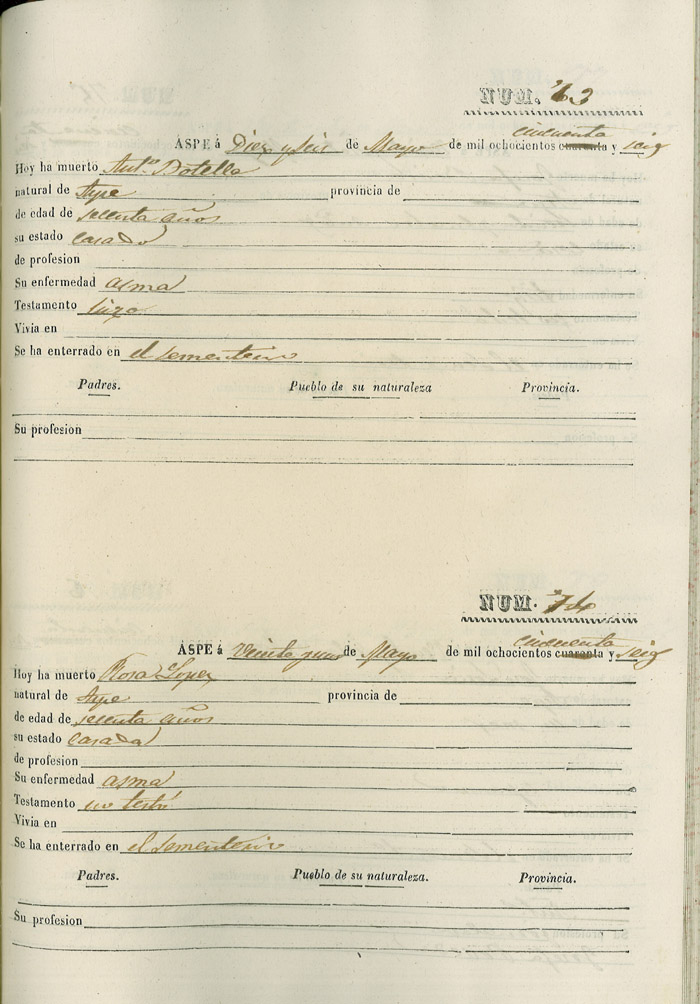 NUM. 73
ASPE á Diez y seis de Mayo de mil ochocientos cuarenta cincuenta y seis
Hoy ha muerto Antº. Botella
natural de Aspe provincia de
de edad de secenta años
su estado casado
de profesion
Su enfermedad asma
Testamento hizo
Vivia en
Se ha enterrado en el sementerio
Padres. Pueblo de su naturaleza Provincia.
Su profesion
NUM. 74
ASPE á Veinte y uno de Mayo de mil ochocientos cuarenta cincuenta y seis
Hoy ha muerto Rosa Lopez
natural de Aspe provincia de
de edad de secenta años
su estado casada
de profesion
Su enfermedad asma
Testamento no testó
Vivia en
Se ha enterrado en el sementerio
Padres. Pueblo de su naturaleza. Provincia.
Su profesion